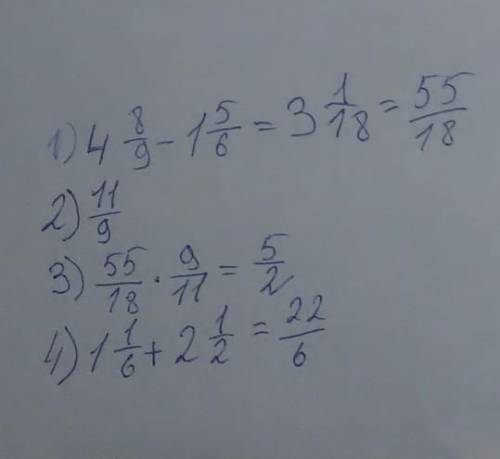 1) 4 8/9 - 1 5/6 = 3 1/18 = 55/18
2) 11/9
3) 55/18 · 9/11 = 5/2
4) 1 1/6 + 2 1/2 = 22/6